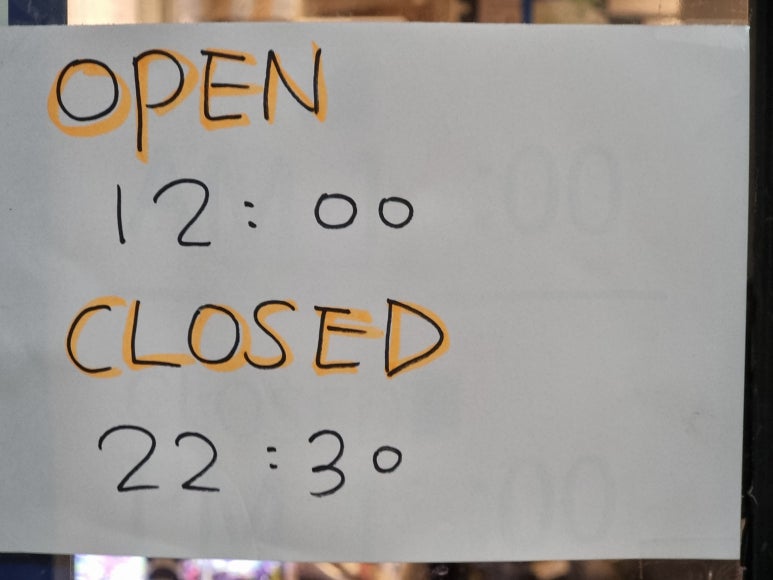 OPEN
12:00
CLOSED
22:30